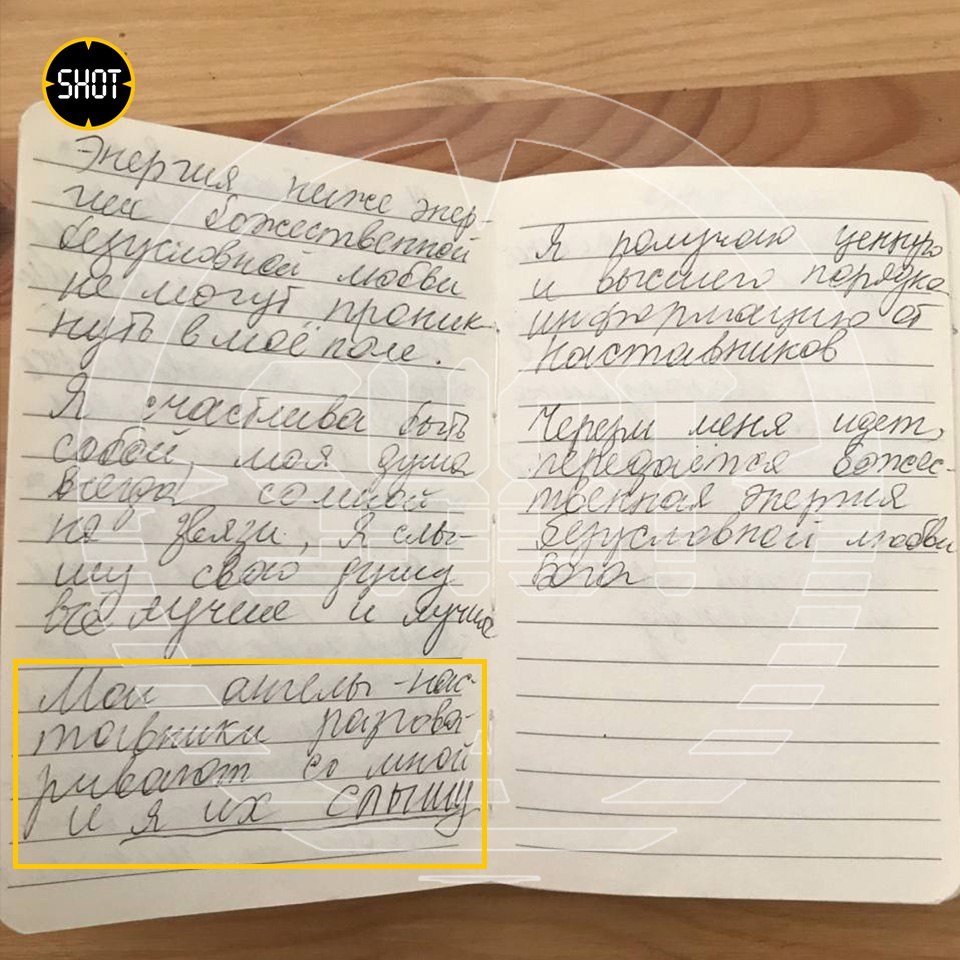 SHOT
Энергия ниже энер-
гии божественной
безусловной любви
не могут проник
нуть в моё поле.
Я счастлива быть
собой, моя душа
всегда со мной
на звязи, Я слы-
шу свою душу
всё лучше и лучше
Мои ангелы-нас-
тавники разгова-
ривают со мной
и я их слышу
Я получаю ценную
и высшего порядка
информацию от
наставников
Черезм меня идет,
передаётся божес-
твенная энергия
безусловной любви
Бога